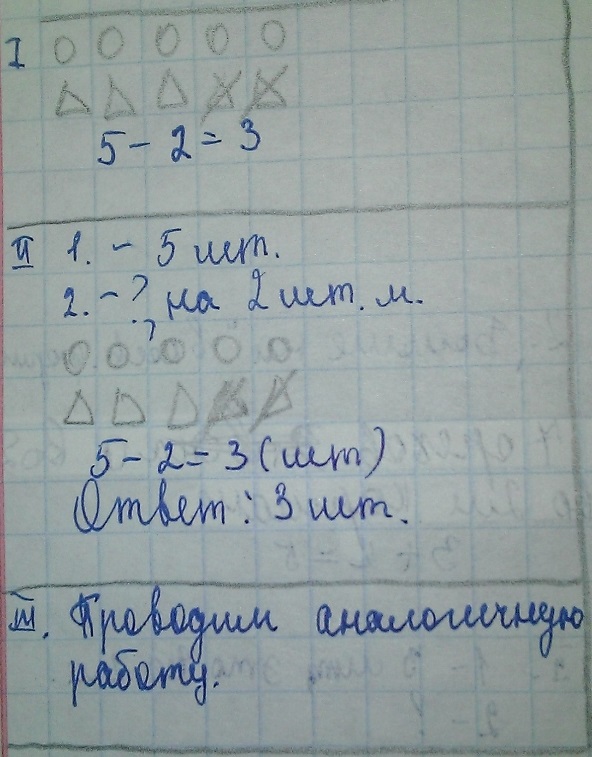 I
5 - 2 = 3
II 1. - 5 шт.
2. - ?, на 2 шт. м.
5 - 2 = 3 (шт)
Ответ: 3 шт.
III. Проводим аналогичную
работу.